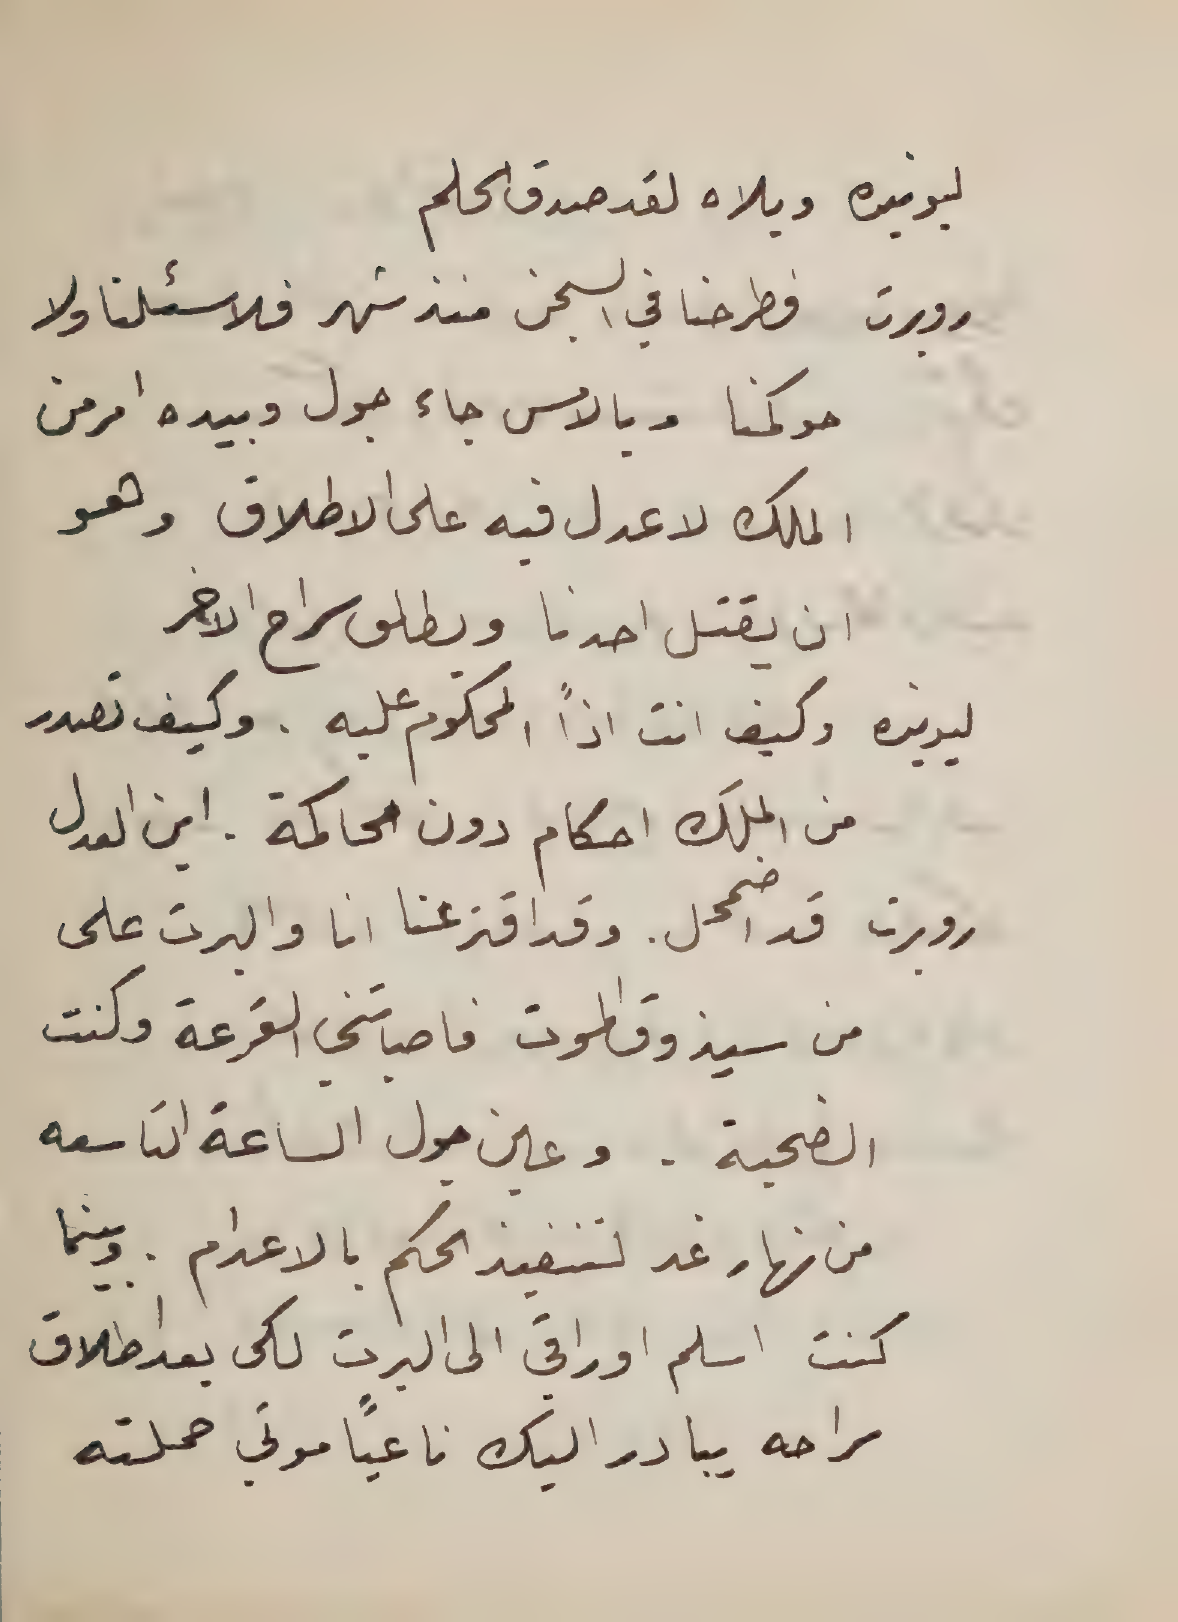 ليونيده ويلاه لقد صدق الحلم
روبرت فطرحنا في السجن منذ شهر فلا سئلنا ولا
حوكمنا وبالامس جاء جول وبيده امر من
الملك لا عدل فيه على الاطلاق وهو
ان يقتل احدنا ويطلق سراح الاخر
ليونيده وكيف انت اذاً المحكوم عليه . وكيف تصدر
من الملك احكام دون محاكمة . اين العدل
روبرت قد اضمحل . وقد اقترعنا انا والبرت على
من سيذوق الموت فاصابتني القرعة وكنت
الضحية . وعين جول الساعة التاسعه
من نهار غد لتنفيذ الحكم بالاعدام . وبينما
كنت اسلم اوراقي الى البرت لكي بعد اطلاق
سراحه يبادر اليك ناعياً موتي حملته